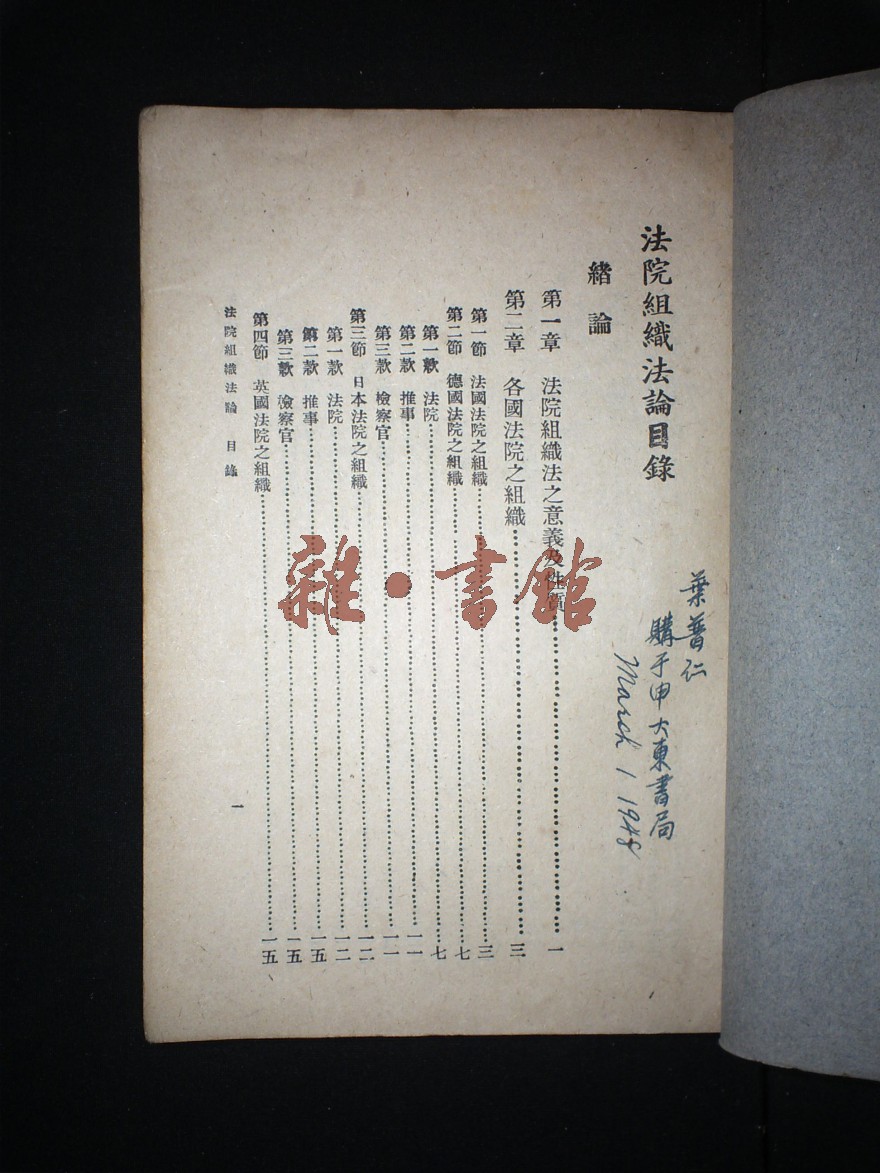 法院組織法論目錄
緒論
第一章 法院組織法之意義及性質……一
第二章 各國法院之組織……三
第一節 法國法院之組織……三
第二節 德國法院之組織……七
第一款 法院……七
第二款 推事……一一
第三款 檢察官……一一
第三節 日本法院之組織……一二
第一款 法院……一二
第二款 推事……一五
第三款 檢察官……一五
第四節 英國法院之組織……一五
法院組織法論 目錄 一
葉普仁
購于申大東書局
March 1 1948
雜·書館